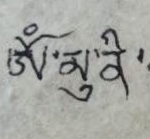 ཨོཾ་མུ་ནི་